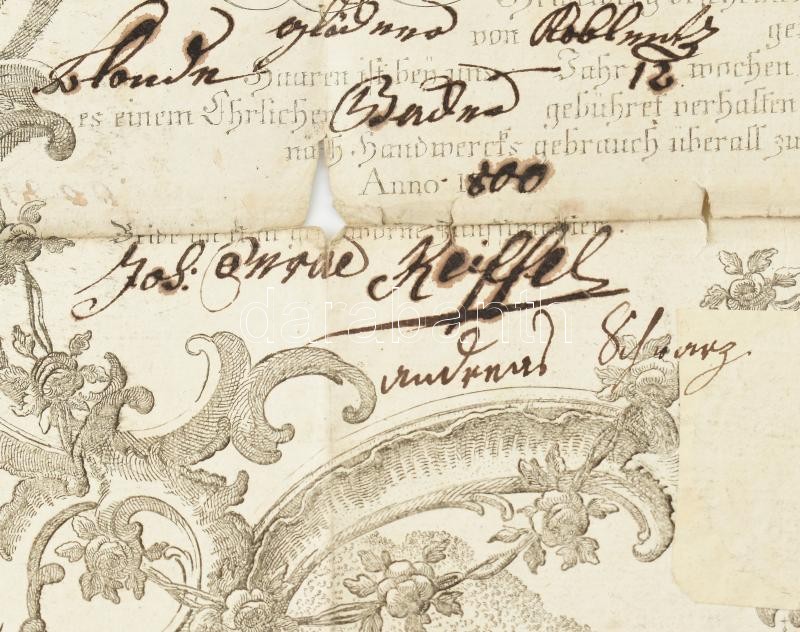 von Koblenz ge
blonde Haaren ist bey uns Jahr 12 wochen
es einem Ehrlichen Bader gebühret verhalten
nach Handwercks gebrauch überall zu
Anno 1800
Joh: Reiffel
andreas Schwarz
darabanth